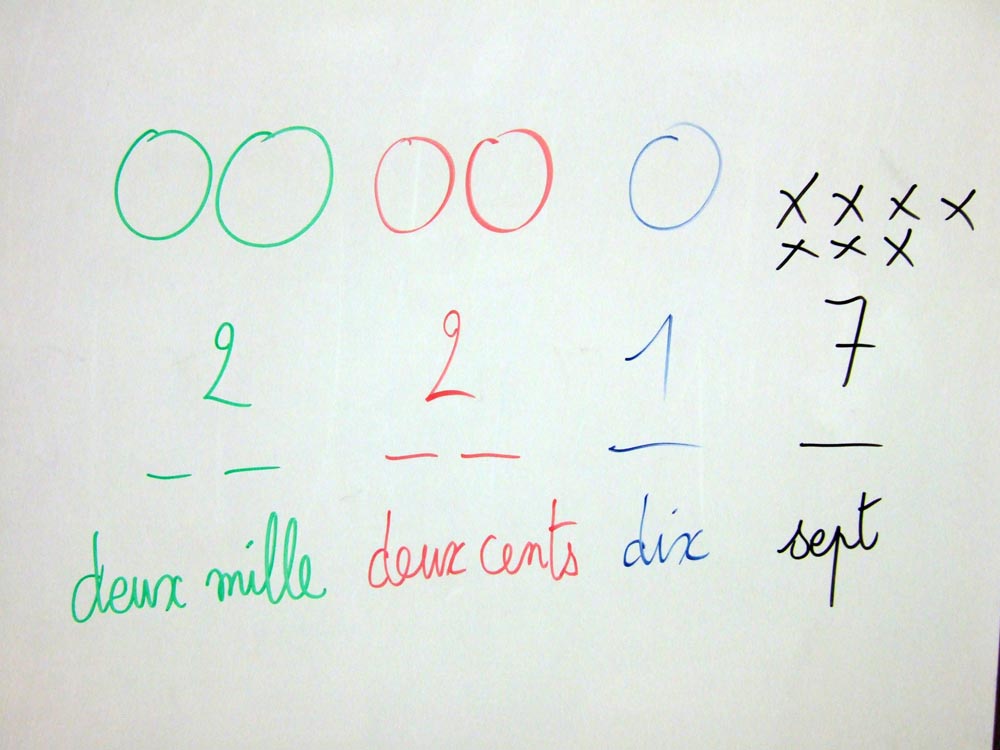 2 2 1 7
deux mille deux cents dix sept